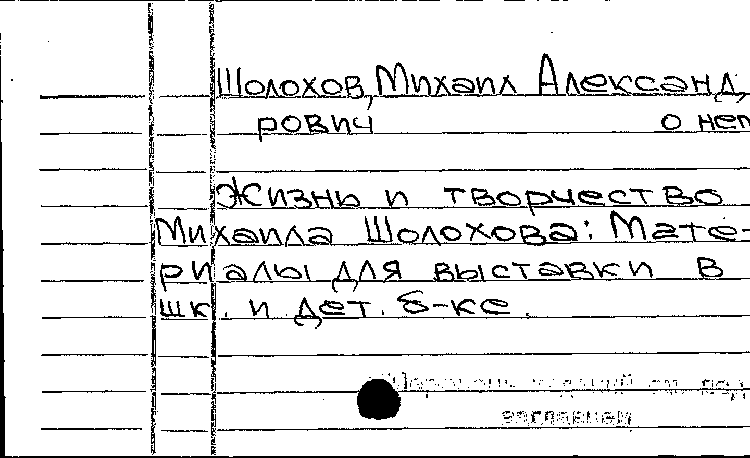 Шолохов, Михаил Александ
рович о нем
Жизнь и творчество
Михаила Шолохова: Мате-
риалы для выставки в
шк. и дет. б-ке.
изданий см. под
заглавием